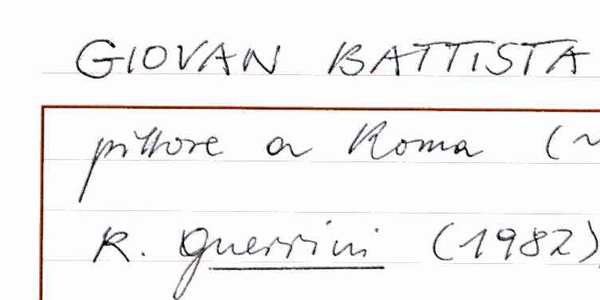 GIOVAN BATTISTA
pittore a Roma (~
R. Guerrini (1982)